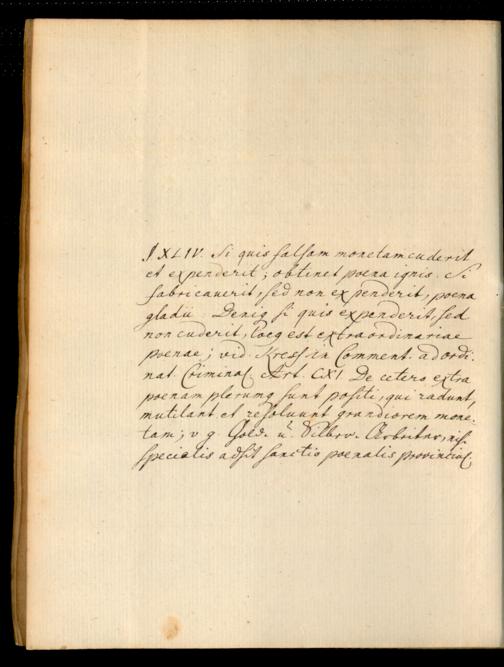 § XLIV. Si quis falsam monetam cuderit
et expenderit; obtinet poena ignis. Si
fabricaverit, sed non expenderit, poena
gladii. Deniq si quis expenderit, sed
non cuderit, locq est extraordinariae
poenae; vid. Kress in Comment. ad ordi-
nat. Criminal. Art. CXI. De cetero extra
poenam plerumq sunt positi, qui radunt,
mutilant et resolvunt grandiorem mone-
tam; v. g. Gold. u. Silbrr. Arbeiter, nisi
specialis adsit sanctio poenalis provincial.